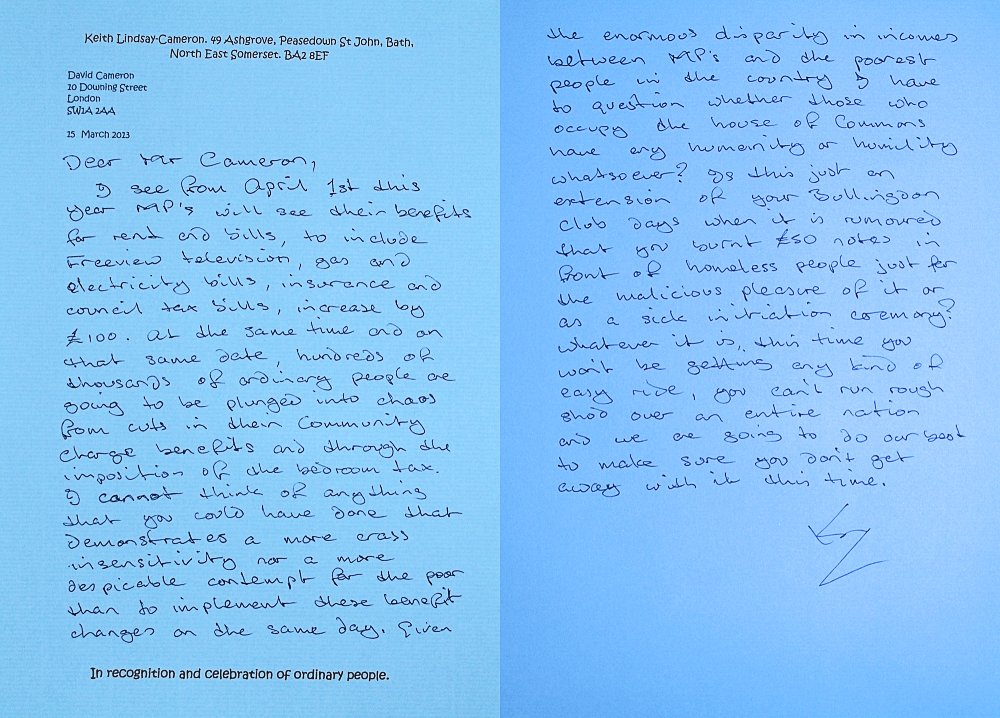 Keith Lindsay-Cameron. 49 Ashgrove, Peasedown St John, Bath,
North East Somerset. BA2 8EF
David Cameron
10 Downing Street
London
SW1A 2AA
15 March 2013
Dear Mr Cameron,
I see from April 1st this
year MP's will see their benefits
for rent and bills, to include
Freeview television, gas and
electricity bills, insurance and
council tax bills, increase by
£100. At the same time and on
that same date, hundreds of
thousands of ordinary people are
going to be plunged into chaos
from cuts in their Community
Charge benefits and through the
imposition of the bedroom tax.
I cannot think of anything
that you could have done that
demonstrates a more crass
insensitivity nor a more
despicable contempt for the poor
than to implement these benefit
changes on the same day. Given
In recognition and celebration of ordinary people.
the enormous disparity in incomes
between MP's and the poorest
people in the country I have
to question whether those who
occupy the house of Commons
have any humanity or humility
whatsoever? Is this just an
extension of your Bullingdon
Club days when it is rumoured
that you burnt £50 notes in
front of homeless people just for
the malicious pleasure of it or
as a sick initiation ceremony?
Whatever it is, this time you
won't be getting any kind of
easy ride, you can't run rough
shod over an entire nation
and we are going to do our best
to make sure you don't get
away with it this time.